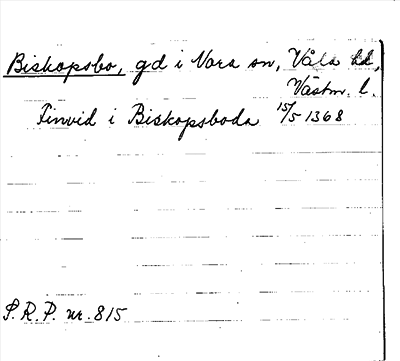 Biskopsbo, gd i Nora sn, Våla hd,
Västm. l.
Finvid i Biskopsboda 15/5 1368
S.R.P. nr. 815